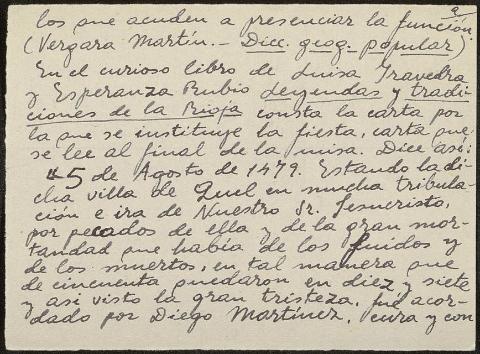 a
los que acuden a presenciar la función
(Vergara Martín.- Dicc. geog. popular)
En el curioso libro de Luisa Yravedra
y Esperanza Rubio Leyendas y tradi-
ciones de la Rioja consta la carta por
la que se instituye la fiesta, carta que
se lee al final de la misa. Dice así:
"5 de Agosto de 1479. Estando la di-
cha villa de Quel en mucha tribula-
ción e ira de Nuestro Sr. Jesucristo,
por pecados de ella y de la gran mor-
tandad que había de los fluidos y
de los muertos, en tal manera que
de cincuenta quedaron en diez y siete
y así visto la gran tristeza, fué acor-
dado por Diego Martínez, cura y con